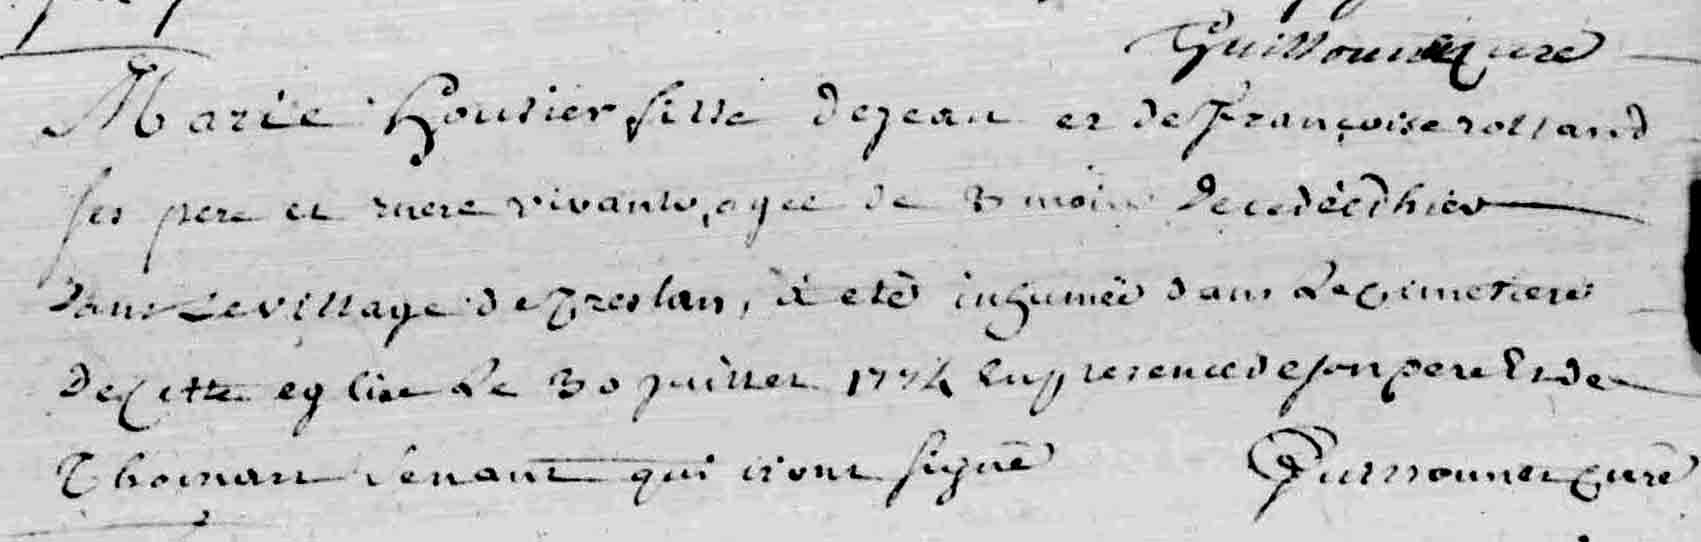 Guillounet curé
Marie Houtier fille de jean et de françoise rolland
ses pere et mere vivants, agee de 3 mois decedée d'hier
dans le village de Treslan, à eté inhumée dans le cimetiere
de cette eglise le 30 juillet 1774 en presence de son pere et de
Thomas qui n'ont signé Guillounet curé